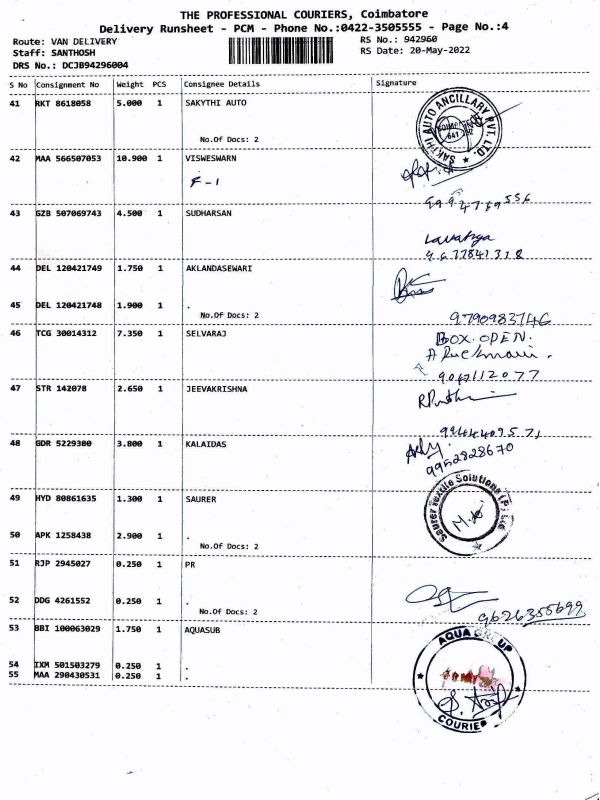 THE PROFESSIONAL COURIERS, Coimbatore
Delivery Runsheet - PCM - Phone No.:0422-3505555 - Page No.:4
Route: VAN DELIVERY RS No.: 942960
Staff: SANTHOSH RS Date: 20-May-2022
DRS No.: DCJB94296004
S No Consignment No Weight PCS Consignee Details Signature
41 RKT 8618058 5.000 1 SAKYTHI AUTO
SAKTHI AUTO ANCILLARY PVT. LTD.
No.Of Docs: 2
42 MAA 566507053 10.900 1 VISWESWARN
F-1
43 GZB 507069743 4.500 1 SUDHARSAN
44 DEL 120421749 1.750 1 AKLANDASEWARI
45 DEL 120421748 1.900 1 .
No.Of Docs: 2
9790983746
46 TCG 30014312 7.350 1 SELVARAJ
BOX OPEN.
47 STR 142078 2.650 1 JEEVAKRISHNA
48 GDR 5229380 3.800 1 KALAIDAS
9952828670
49 HYD 80861635 1.300 1 SAURER
Saurer Textile Solutions (P) Ltd
50 APK 1258438 2.900 1 .
No.Of Docs: 2
51 RJP 2945027 0.250 1 PR
52 DDG 4261552 0.250 1 .
No.Of Docs: 2
9626355699
53 BBI 100063029 1.750 1 AQUASUB
AQUA GROUP
54 IXM 501503279 0.250 1 .
55 MAA 290430531 0.250 1 .
COURIER